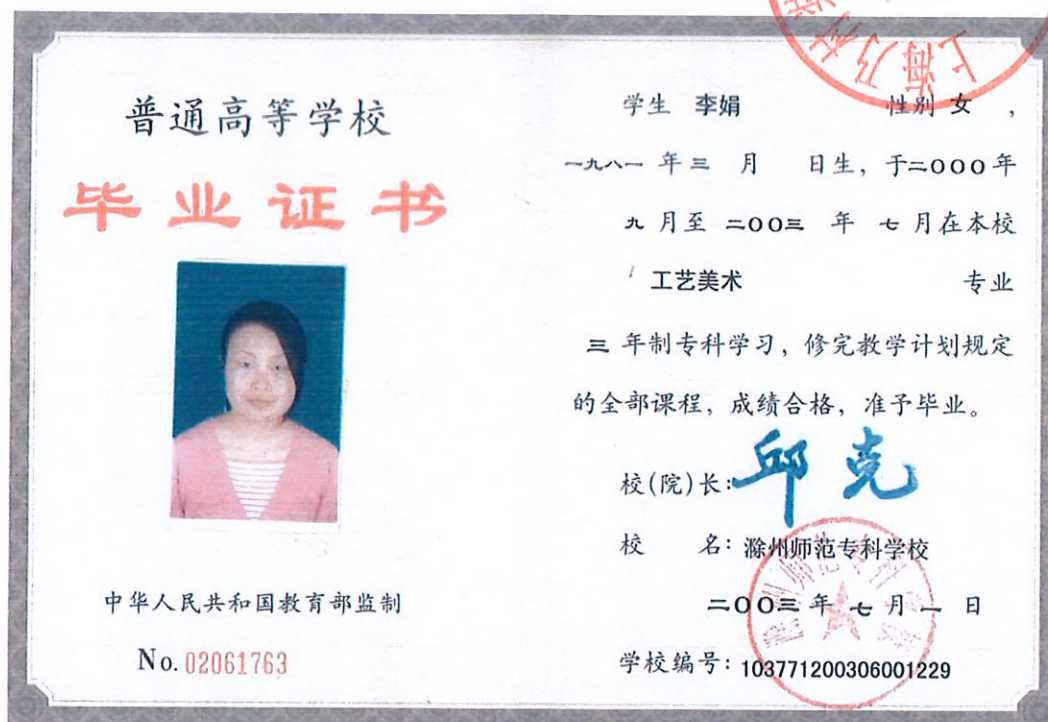 普通高等学校
毕业证书
中华人民共和国教育部监制
No. 02061763
上海乃村
学生 李娟 性别 女 ,
一九八一 年 三 月 日生, 于二000年
九 月至 二00三 年 七 月在本校
工艺美术 专业
三 年制专科学习, 修完教学计划规定
的全部课程, 成绩合格, 准予毕业。
校(院)长: 邱克
校 名: 滁州师范专科学校
二00三 年 七 月 一 日
学校编号: 103771200306001229
滁州师范专科学校